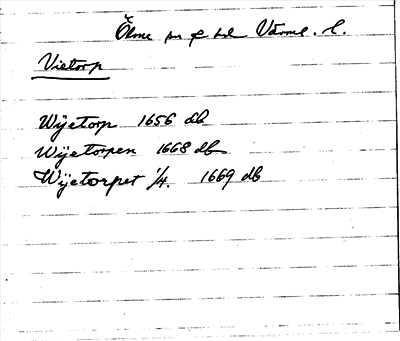 Ölme sn o hd Värml. l.
Vietorp
Wijetorp 1656 db
Wijetorpen 1668 db
Wijetorpet 1/4. 1669 db